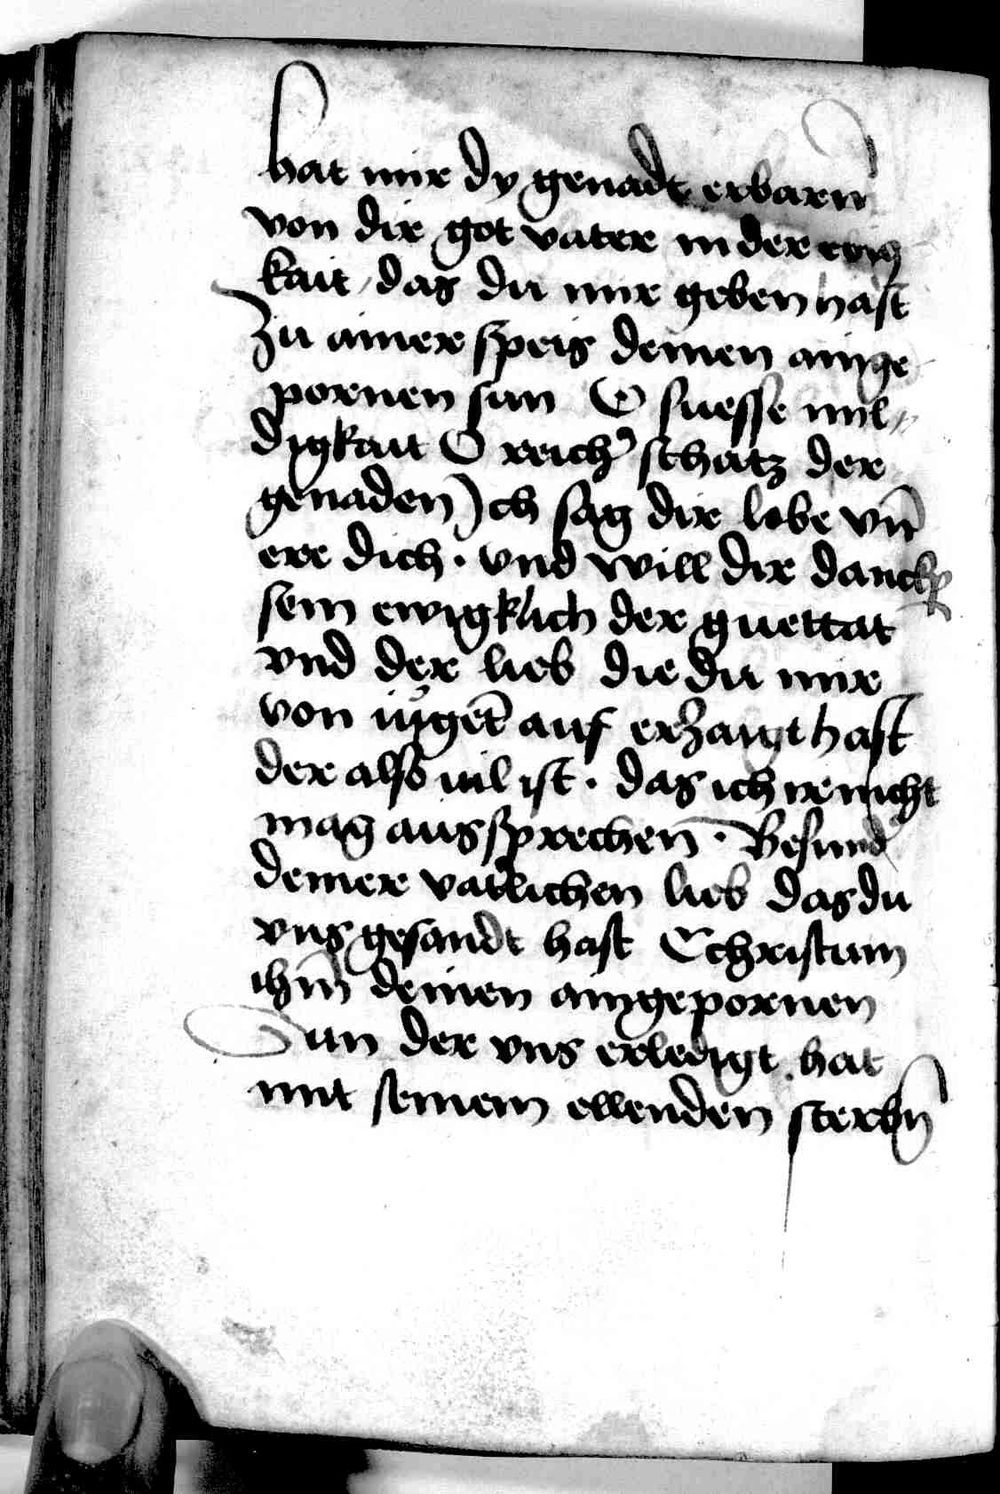 hat mir dy genadt erbarn̄
von dir got vater in der ewig
kait / das du mir geben hast
Zu ainer speis deinen ainge
pornen sun O suesse mil„
digkait O reich' schatz der
genaden Ich sag dir lobe vn̄
ere dich · vnd will dir danckp̱
sein ewigklich der guettat
vnd der lieb die du mir
von iuget̄ auf erzaigt hast
der also uil ist · das ich ir nicht
mag aussprechen · Besund'
deiner vatlichen lieb das du
vns gesandt hast Cchristum
ihm̄ deinen aingepornen
Sun der vns erledigt hat
mit seinem ellenden sterbn̄